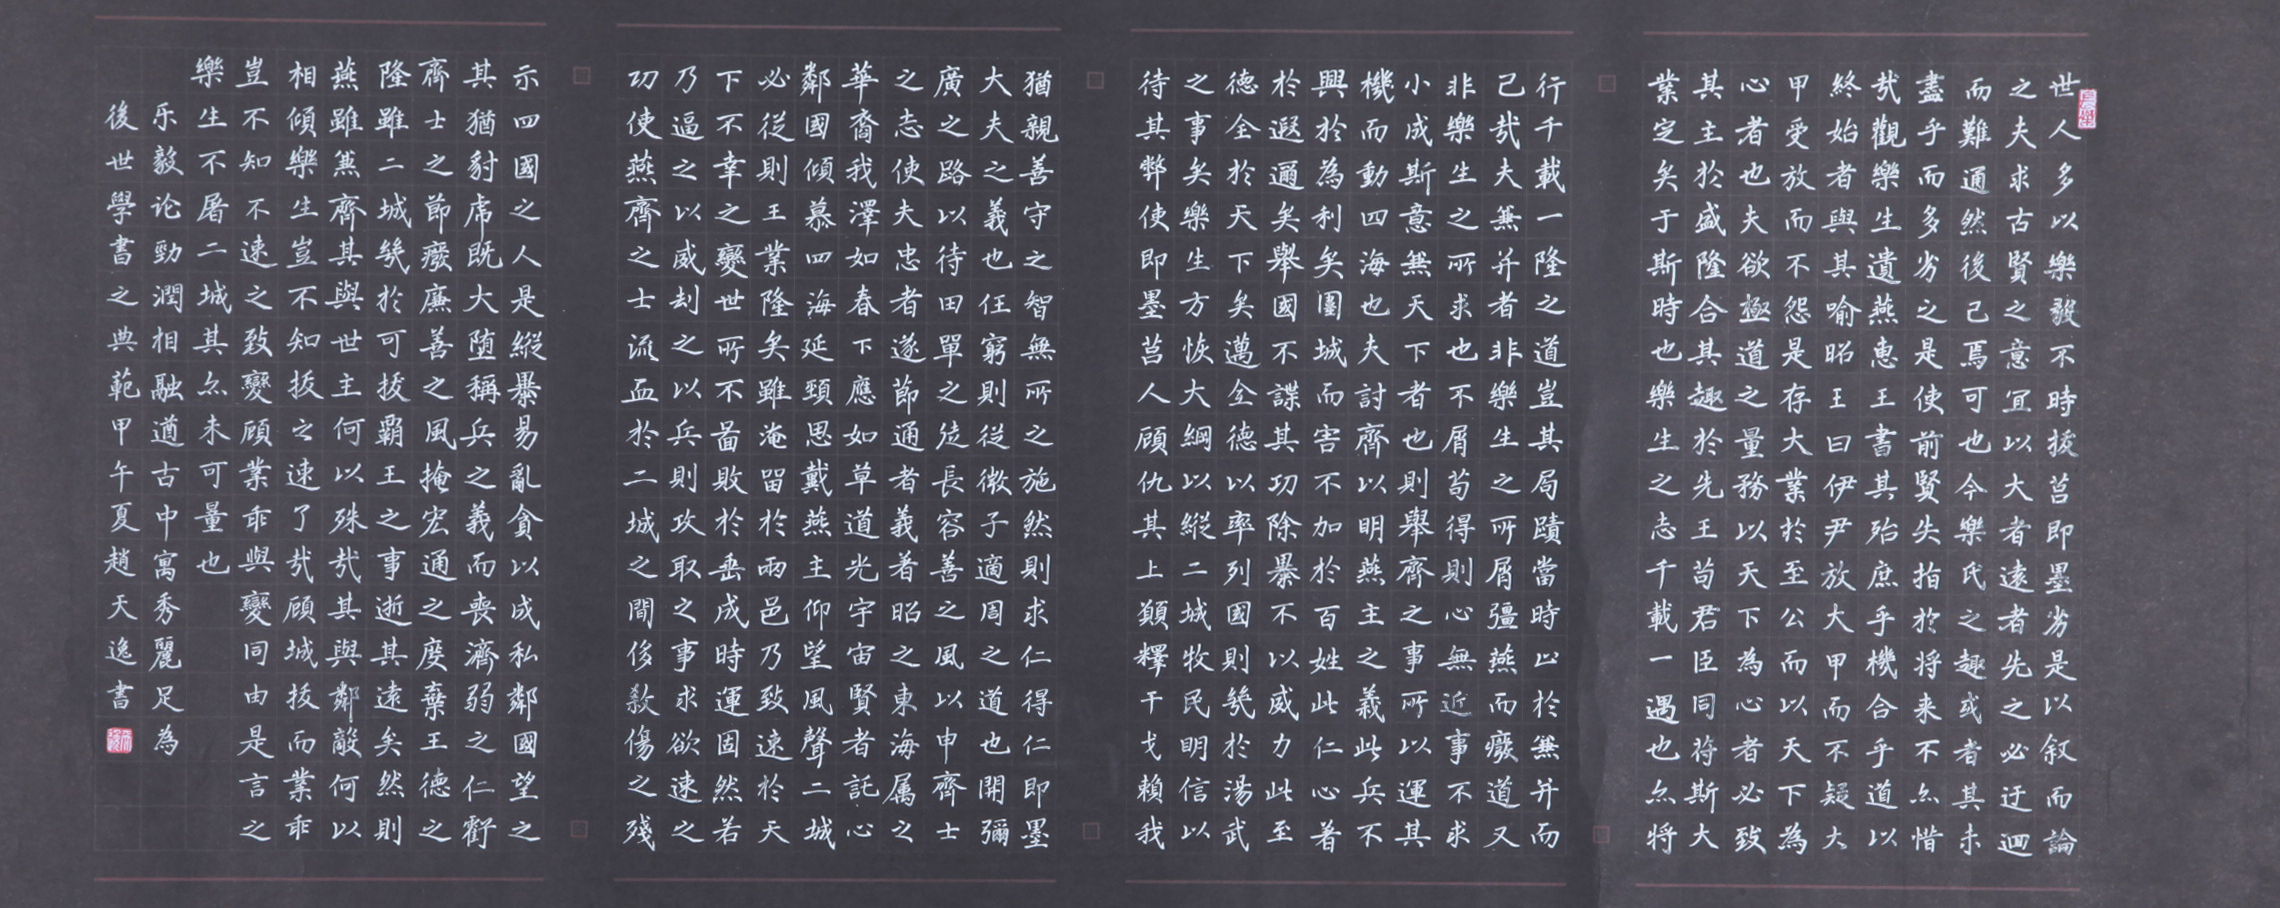 世人多以樂毅不時拔莒即墨劣是以叙而論
之夫求古賢之意宜以大者遠者先之必迂迴
而難通然後己焉可也今樂氏之趣或者其未
盡乎而多劣之是使前賢失指於将来不亦惜
哉觀樂生遺燕惠王書其殆庶乎機合乎道以
終始者與其喻昭王曰伊尹放大甲而不疑大
甲受放而不怨是存大業於至公而以天下為
心者也夫欲極道之量務以天下為心者必致
其主於盛隆合其趣於先王苟君臣同符斯大
業定矣于斯時也樂生之志千載一遇也亦将
行千載一隆之道豈其局蹟當時止於兼并而
己哉夫兼并者非樂生之所屑彊燕而癈道又
非樂生之所求也不屑苟得則心無近事不求
小成斯意無天下者也則舉齊之事所以運其
機而動四海也夫討齊以明燕主之義此兵不
興於為利矣圍城而害不加於百姓此仁心著
於遐邇矣舉國不謀其功除暴不以威力此至
德全於天下矣邁全德以率列國則幾於湯武
之事矣樂生方恢大綱以縱二城牧民明信以
待其弊使即墨莒人顧仇其上願釋干戈賴我
猶親善守之智無所之施然則求仁得仁即墨
大夫之義也任窮則從微子適周之道也開彌
廣之路以待田單之徒長容善之風以申齊士
之志使夫忠者遂節通者義著昭之東海属之
華裔我澤如春下應如草道光宇宙賢者託心
鄰國傾慕四海延頸思戴燕主仰望風聲二城
必從則王業隆矣雖淹留於兩邑乃致速於天
下不幸之變世所不啚敗於垂成時運固然若
乃逼之以威刦之以兵則攻取之事求欲速之
功使燕齊之士流血於二城之間侈殺傷之殘
示四國之人是縱暴易亂貪以成私鄰國望之
其猶豺虎既大堕稱兵之義而喪濟弱之仁虧
齊士之節癈廉善之風掩宏通之度棄王德之
隆雖二城幾於可拔霸王之事逝其遠矣然則
燕雖兼齊其與世主何以殊哉其與鄰敵何以
相傾樂生豈不知拔之速了哉顧城拔而業乖
豈不知不速之致變顧業乖與變同由是言之
樂生不屠二城其亦未可量也
乐毅论勁潤相融遒古中寓秀麗足為
後世學書之典範甲午夏趙天逸書